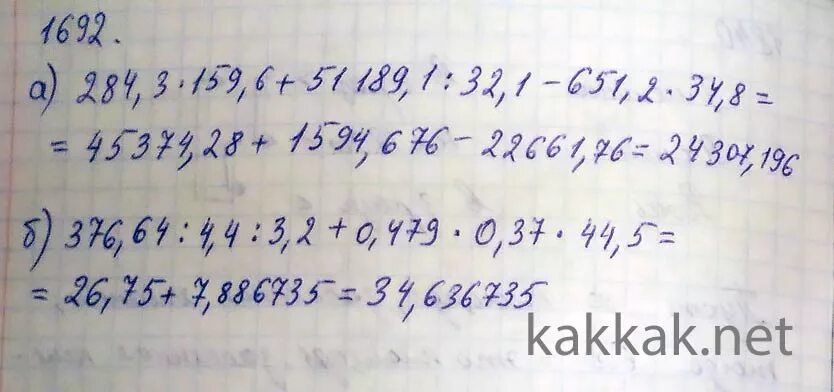 1692.
а) 284,3·159,6+51189,1:32,1-651,2·34,8=
=45374,28+1594,676-22661,76=24307,196
б) 376,64:4,4:3,2+0,479·0,37·44,5=
=26,75+7,886735=34,636735
kakkak.net